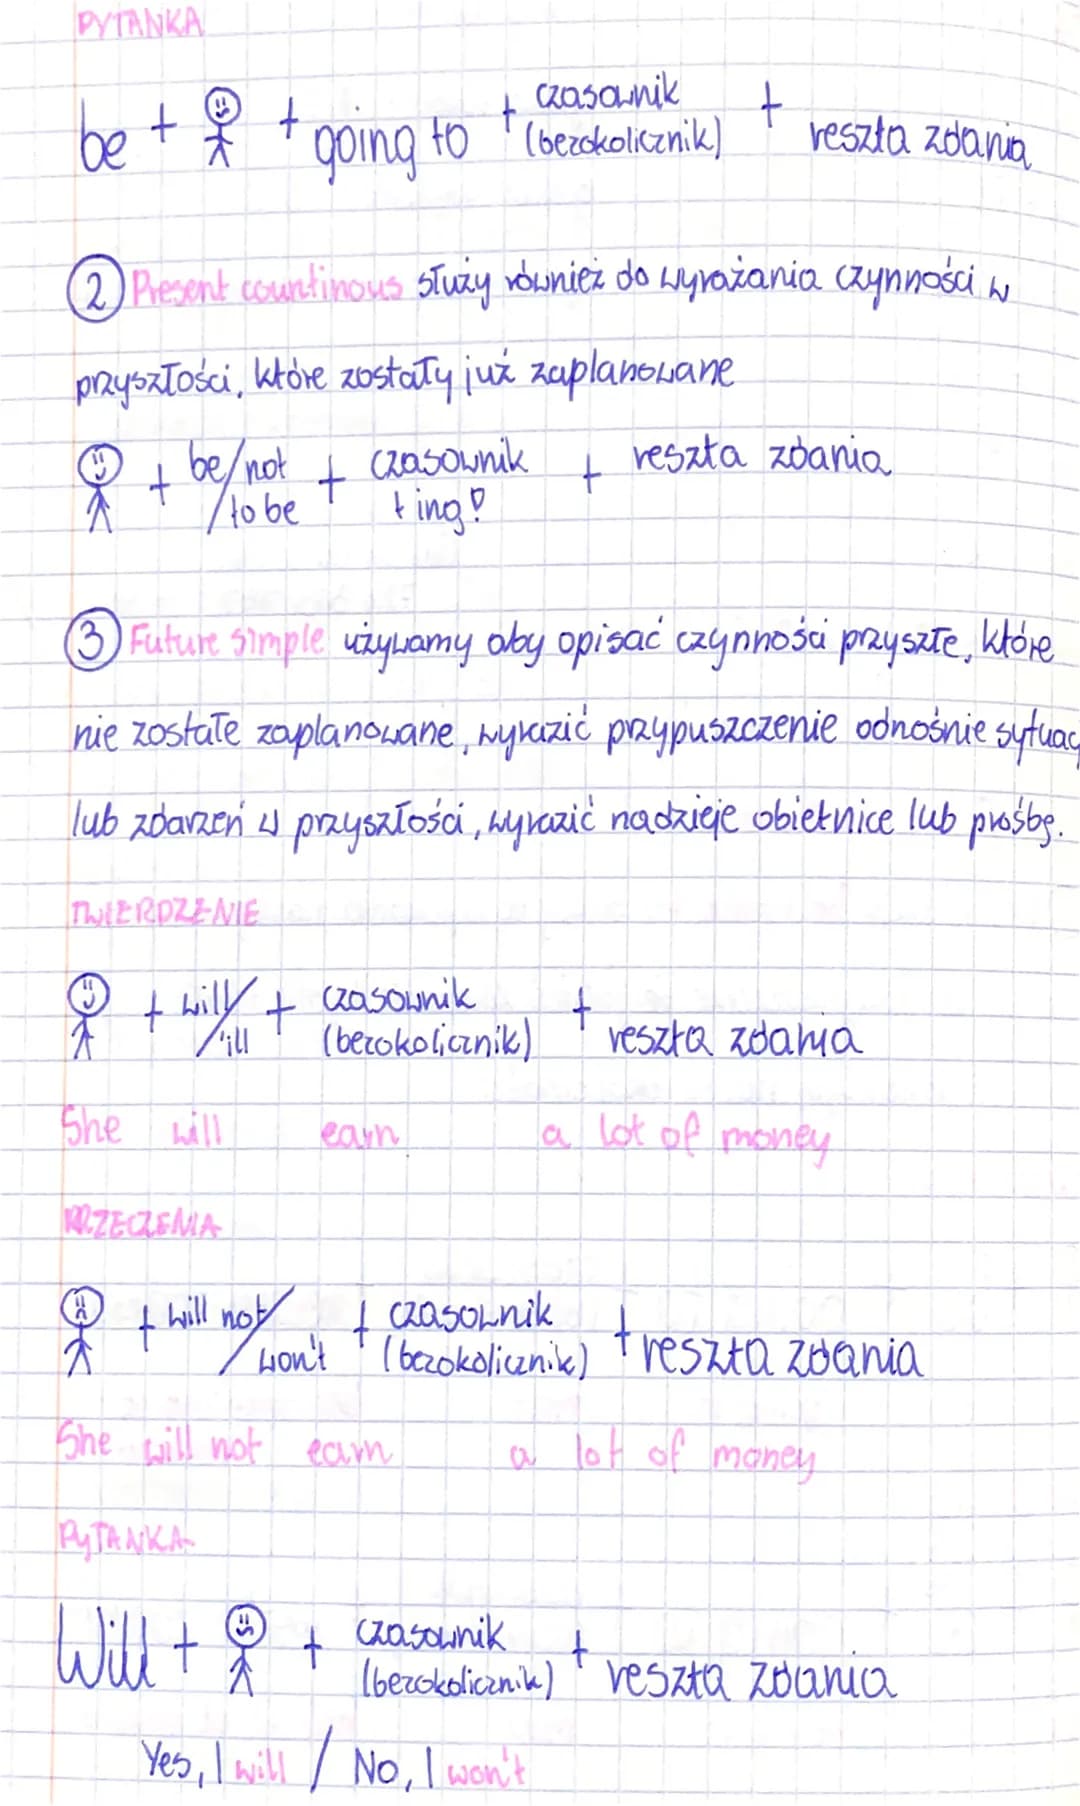 PYTANKA
be + + going to + czasownik (bezokolicznik) + reszta zdania
2 Present countinous służy również do wyrażania czynności w
przyszłości, które zostały już zaplanowane
+ be/not to be + czasownik + ing! + reszta zdania
3 Future simple używamy aby opisać czynności przyszłe, które
nie zostałe zaplanowane, wyrazić przypuszczenie odnośnie sytuacj
lub zdarzeń w przyszłości, wyrazić nadzieje obietnice lub prośbę.
TWIERDZENIE
+ will/'ill + czasownik (bezokolicznik) + reszta zdania
She will earn a lot of money
PRZECZENIA
+ will not/won't + czasownik (bezokolicznik) + reszta zdania
She will not earn a lot of money
PYTANKA
Will + + czasownik (bezokolicznik) + reszta zdania
Yes, I will / No, I won't